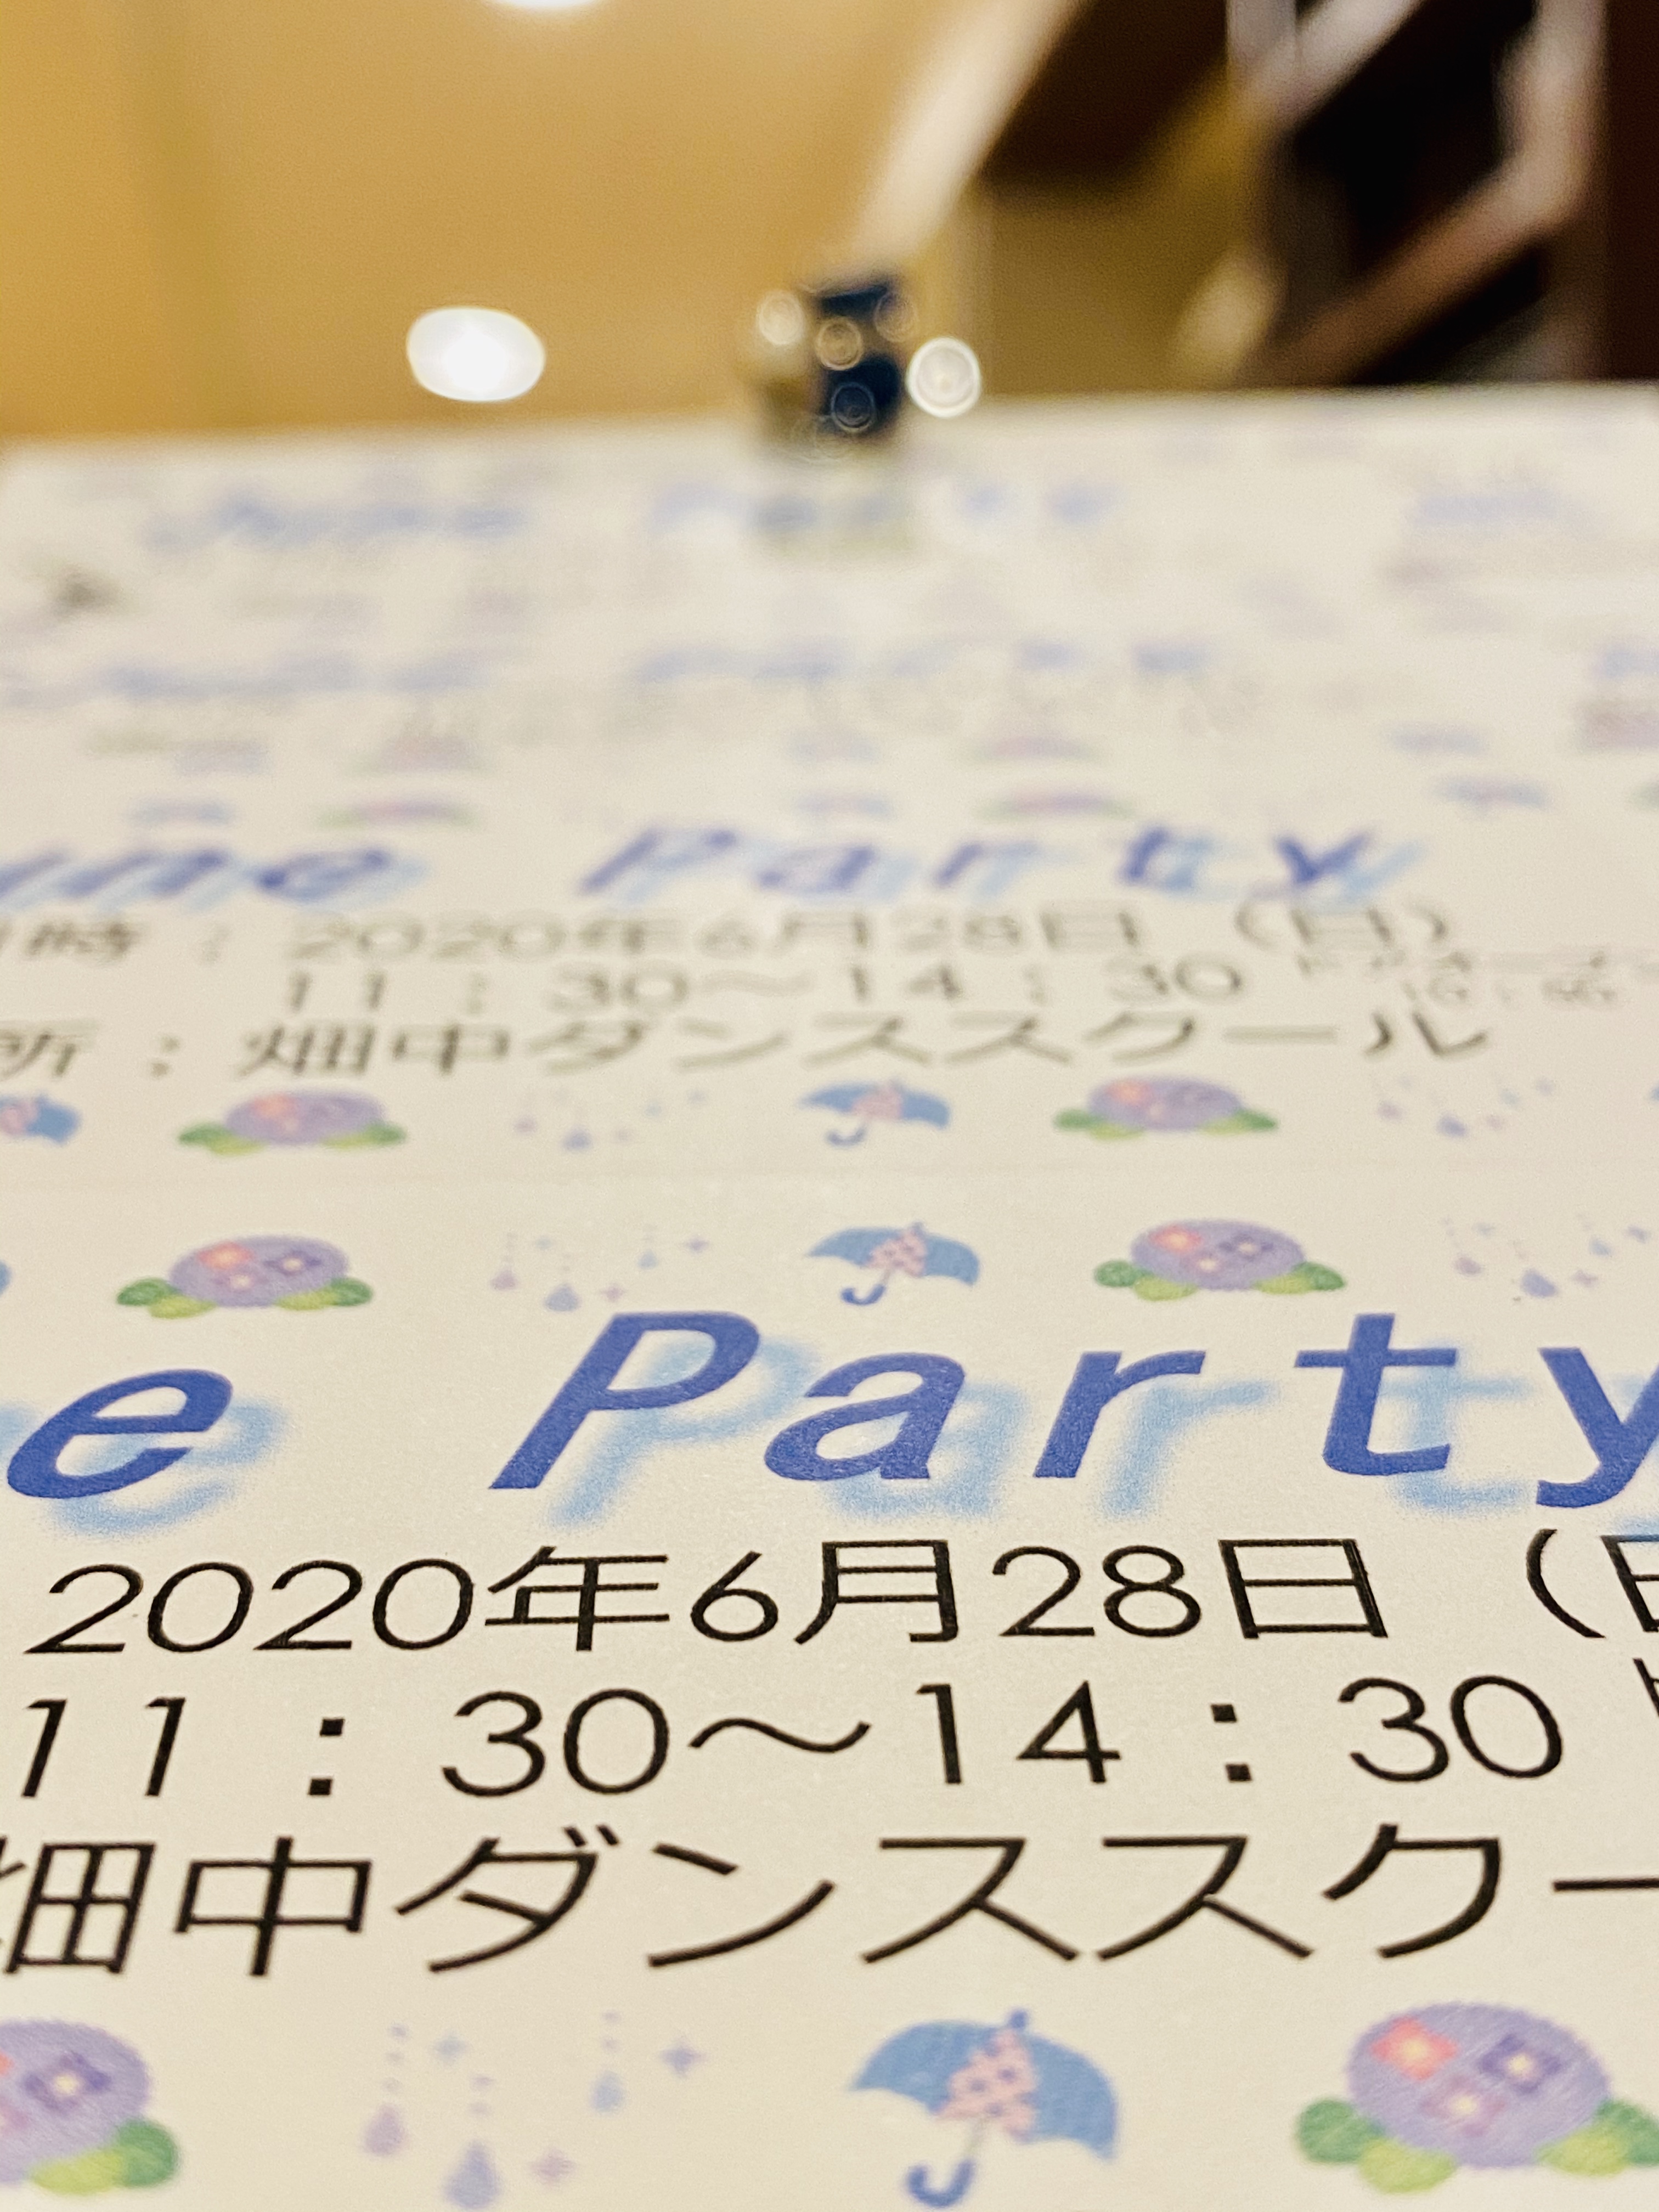 June Party
une Party
時：2020年6月28日（日）
11：30～14：30
所：畑中ダンススクール
e Party
2020年6月28日（日
11：30～14：30
畑中ダンススクー